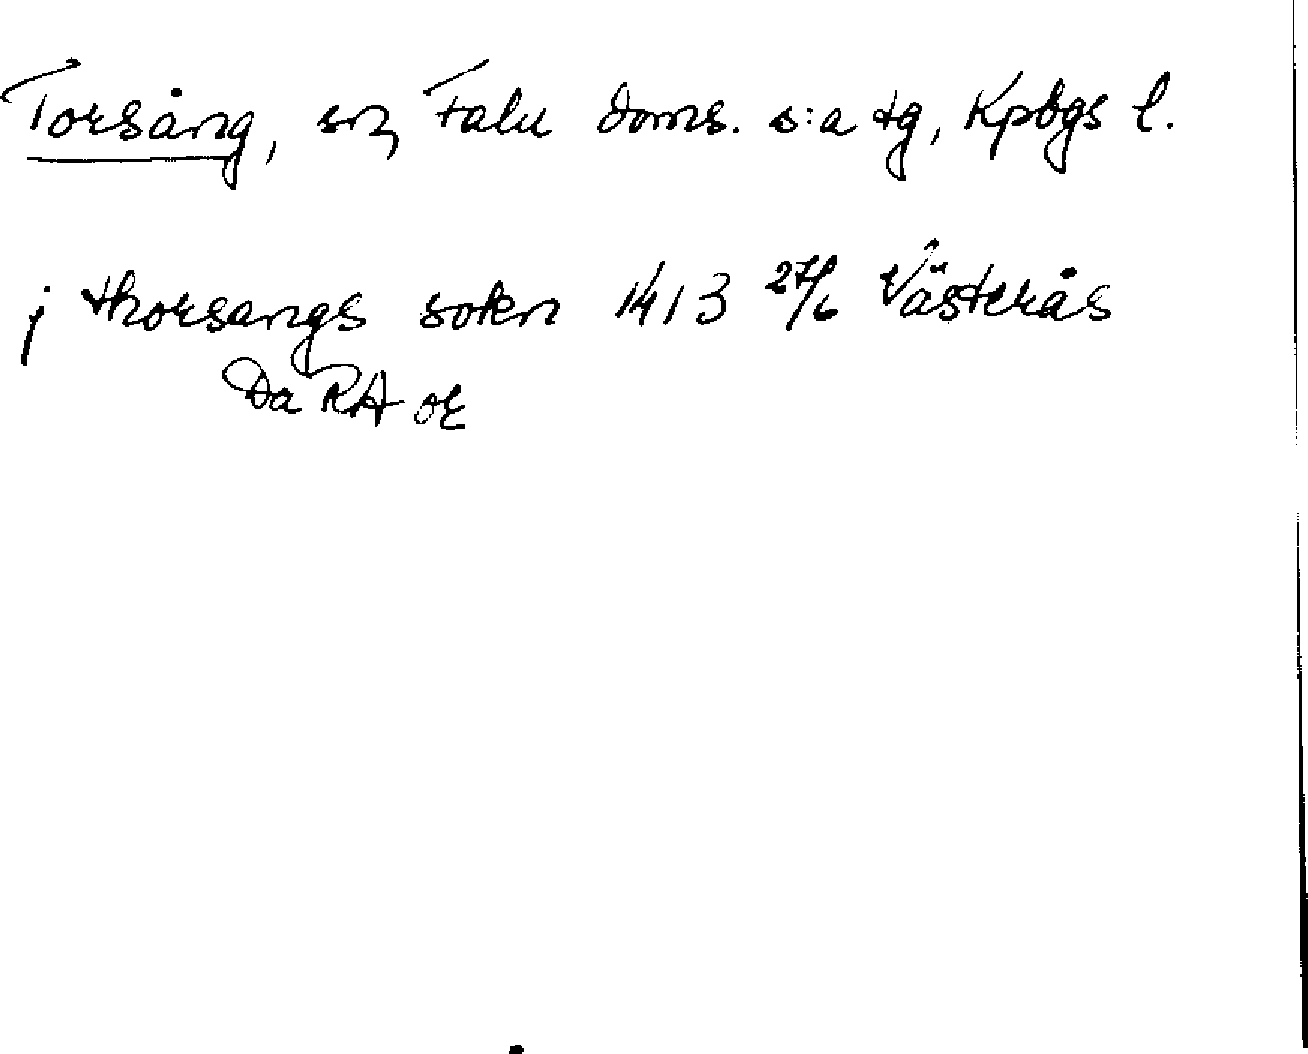 Torsång, sn, Falu doms. s:a tg, Kpbgs l.
j thorsangs sokn 1413 27/6 Västerås
Da RA or